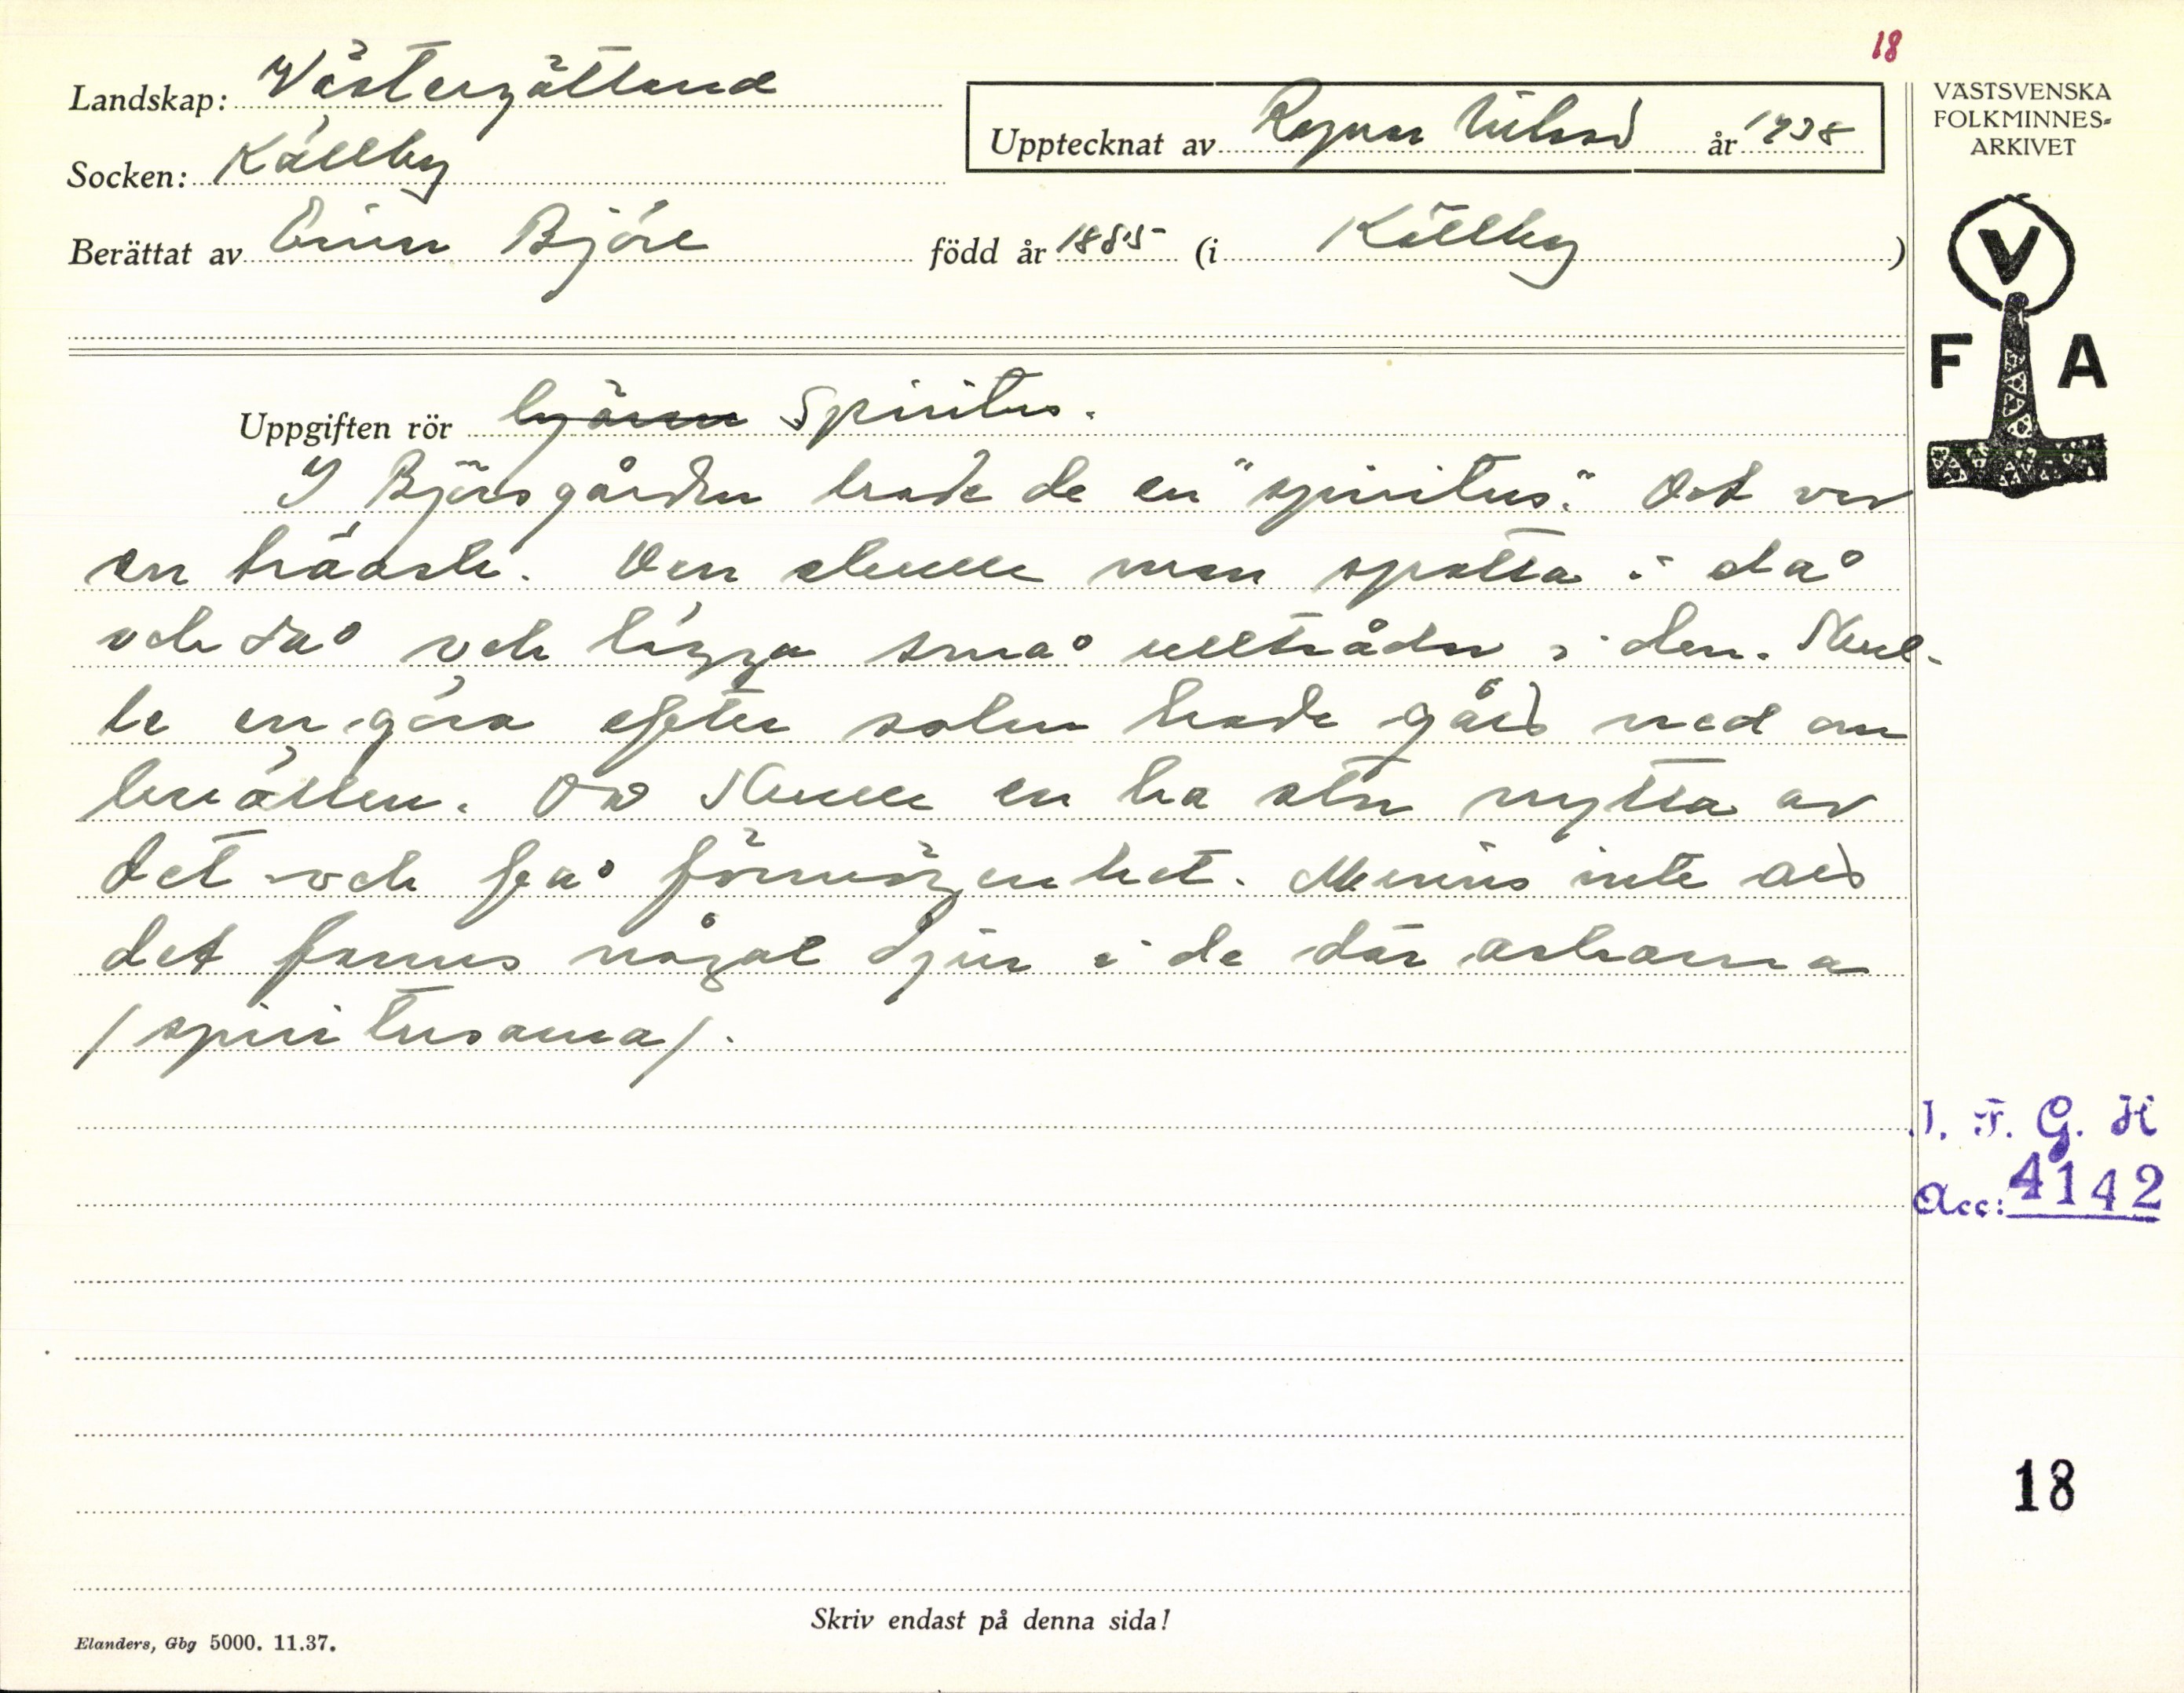 18
Landskap: Västergötland
Socken: Källby
Upptecknat av Ragnar Nilsson år 1938
Berättat av Einar Björe född år 1885 (i Källby)
VÄSTSVENSKA
FOLKMINNES-
ARKIVET
V
F A
Uppgiften rör Spiritus.
I Björsgården hade de en "spiritus". Det var
en träask. Den skulle man spotta i då
och då och lägga små ulltrådar i den. Skul-
le en göra efter solen hade gått ned om
kvällen. Då skulle en ha stor nytta av
det och få förmögenhet. Minns inte att
det fanns något djur i de där askarna
/spiritusarna/.
I. F. G. H
Acc: 4142
18
Skriv endast på denna sida!
Elanders, Gbg 5000. 11.37.